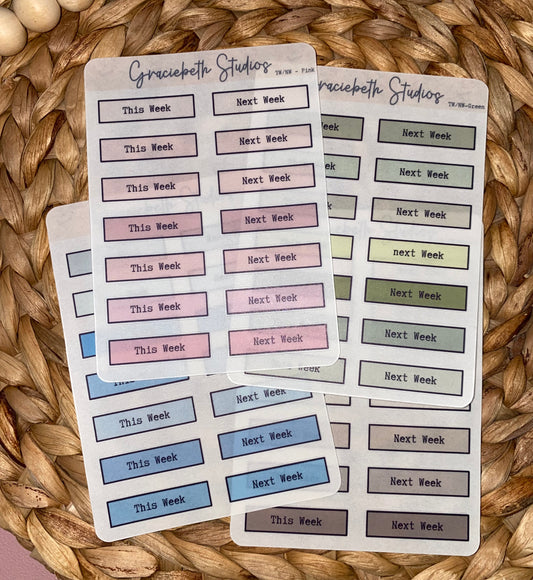 Graciebeth Studios
TW/NW - Pink
This Week Next Week
This Week Next Week
This Week Next Week
This Week Next Week
This Week Next Week
This Week Next Week
This Week Next Week
Graciebeth Studios
TW/NW-Green
Next Week
Next Week
Next Week
next Week
Next Week
Next Week
Next Week
This Week Next Week
This Week Next Week
This Week Next Week
This Week Next Week
Next Week
Next Week
This Week Next Week